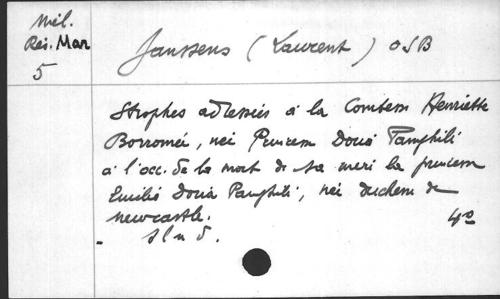 Mél.
Rés. Mar
5
Janssens (Laurent) OSB
Strophes adressées à la Comtesse Henriette
Borromée, née Princesse Doria Pamphili
à l'occ. de la mort de sa mère la princesse
Emilie Doria Pamphili, née duchesse de
Newcastle.
- sl n d. 4°